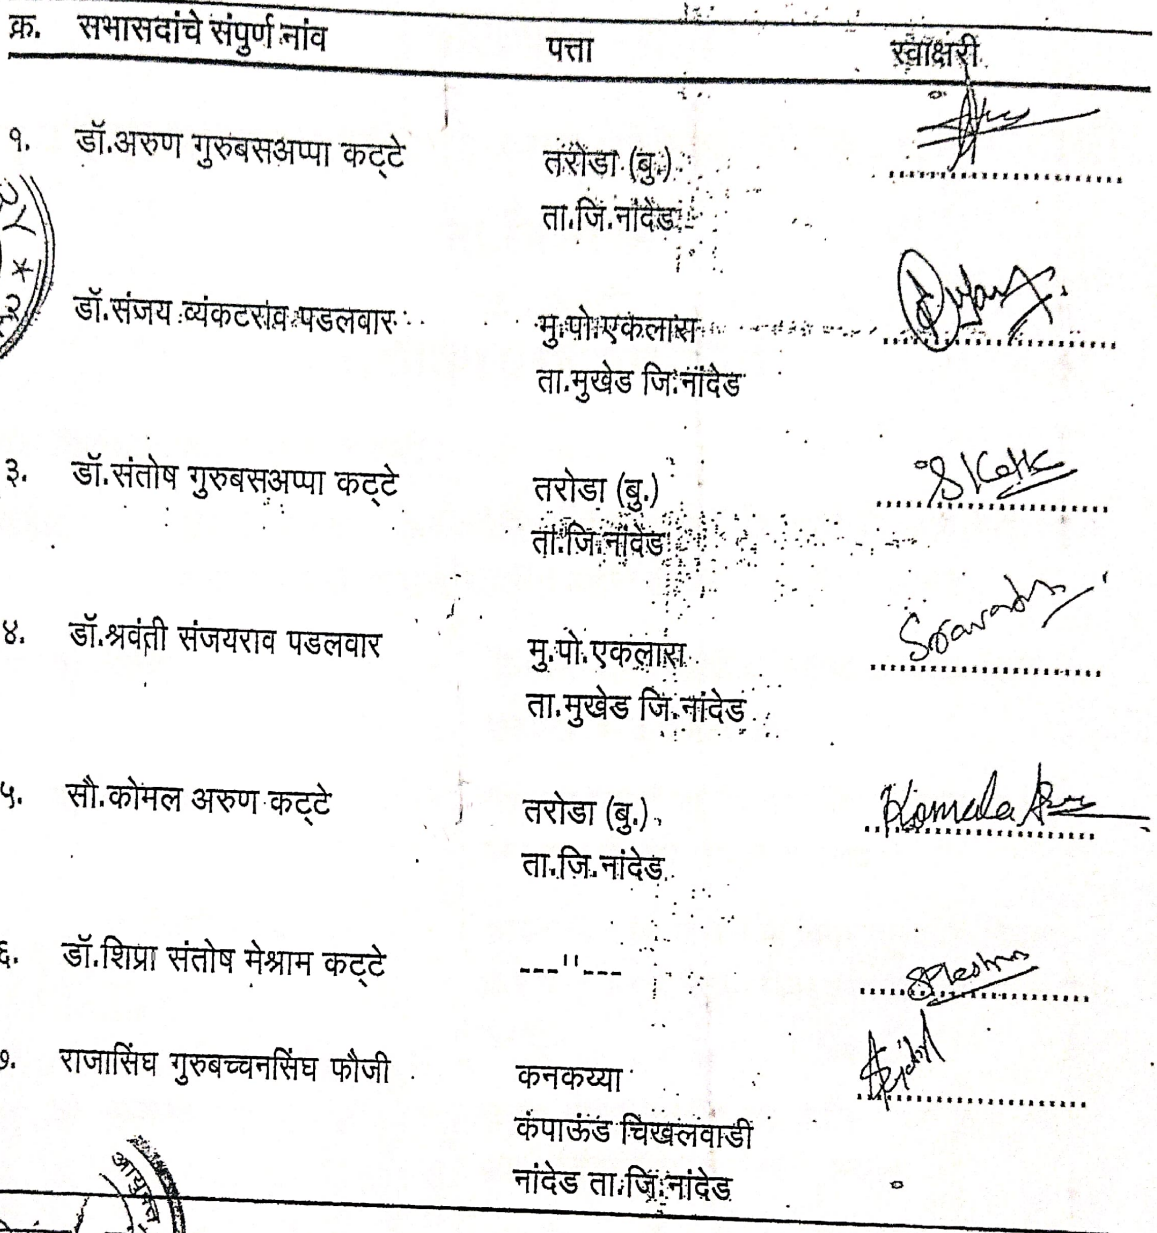 क्र. सभासदांचे संपुर्ण नांव पत्ता स्वाक्षरी
१. डॉ.अरुण गुरुबसअप्पा कट्टे तरोडा (बु.)
ता.जि.नांदेड
डॉ.संजय व्यंकटराव पडलवार मु.पो.एकलारा
ता.मुखेड जि.नांदेड
३. डॉ.संतोष गुरुबसअप्पा कट्टे तरोडा (बु.) SKatte
ता.जि.नांदेड
४. डॉ.श्रवंती संजयराव पडलवार मु.पो.एकलारा
ता.मुखेड जि.नांदेड
५. सौ.कोमल अरुण कट्टे तरोडा (बु.) Komala
ता.जि.नांदेड
६. डॉ.शिप्रा संतोष मेश्राम कट्टे ---"---
७. राजासिंघ गुरुबच्चनसिंघ फौजी कनकय्या
कंपाऊंड चिखलवाडी
नांदेड ता.जि.नांदेड